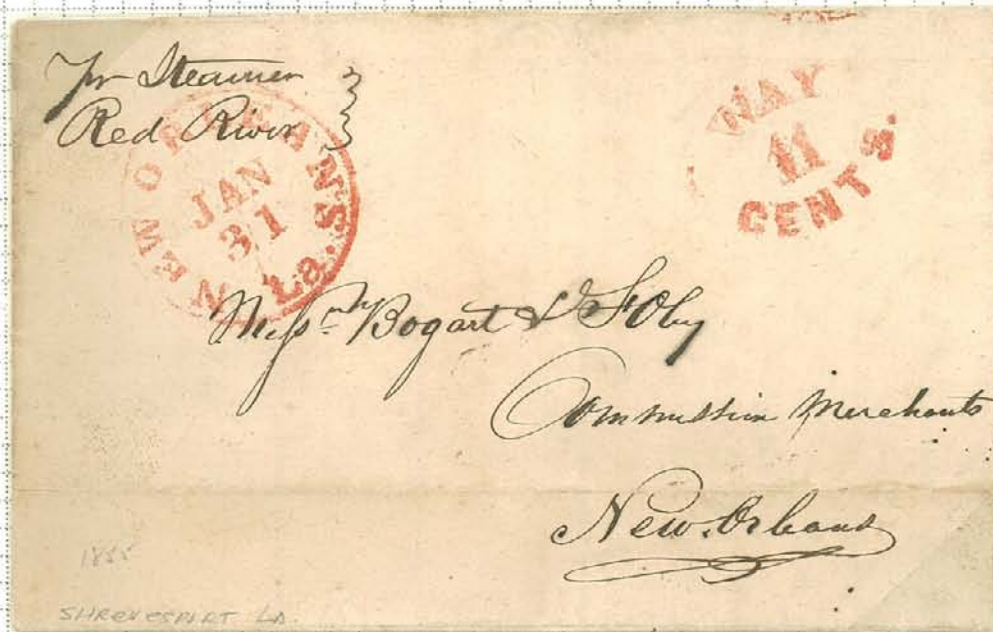 pr Steamer
Red River
NEW ORLEANS La.
JAN
31
WAY
11
CENTS.
Messrs Bogart & Foby
Commission Merchants
New Orleans
1855
SHREVESPORT LA.